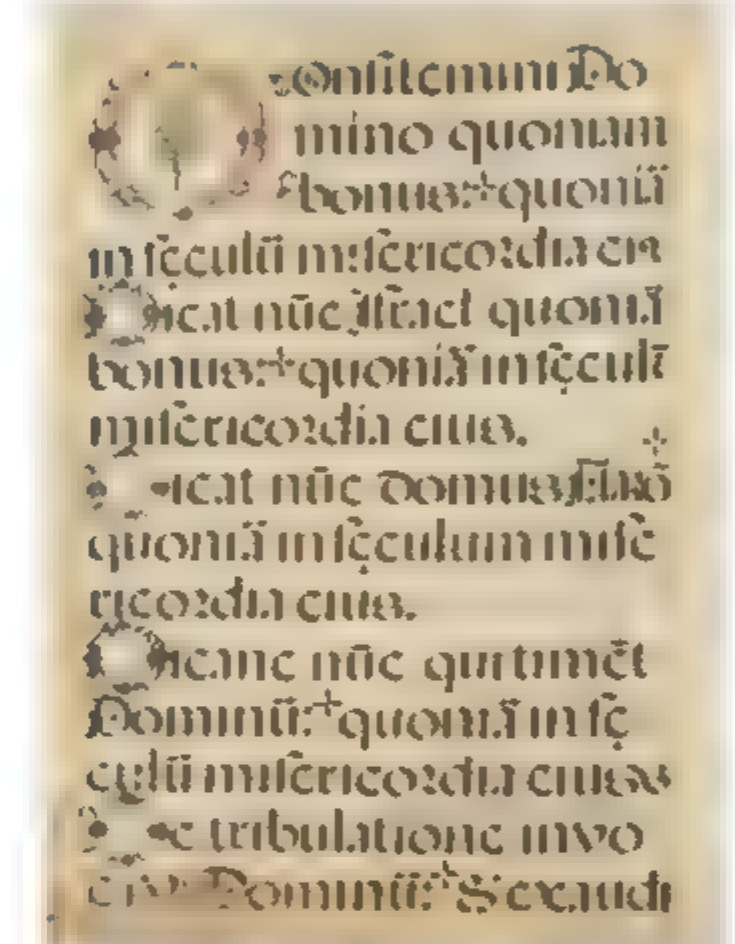 COnfitemini Do
mino quoniam
bonus:+quoniā
in sęculū misericordia eiꝰ
Dicat nūc Israel quoniā
bonus:+quoniā in sęculū
misericordia eius.
Dicat nūc domus Aarō
quoniā in sęculum mise
ricordia eius.
Dicanc nūc qui timēt
Dominū:+quoniā in sę
culū misericordia eius
De tribulatione invo
Dominū:+& exaudi